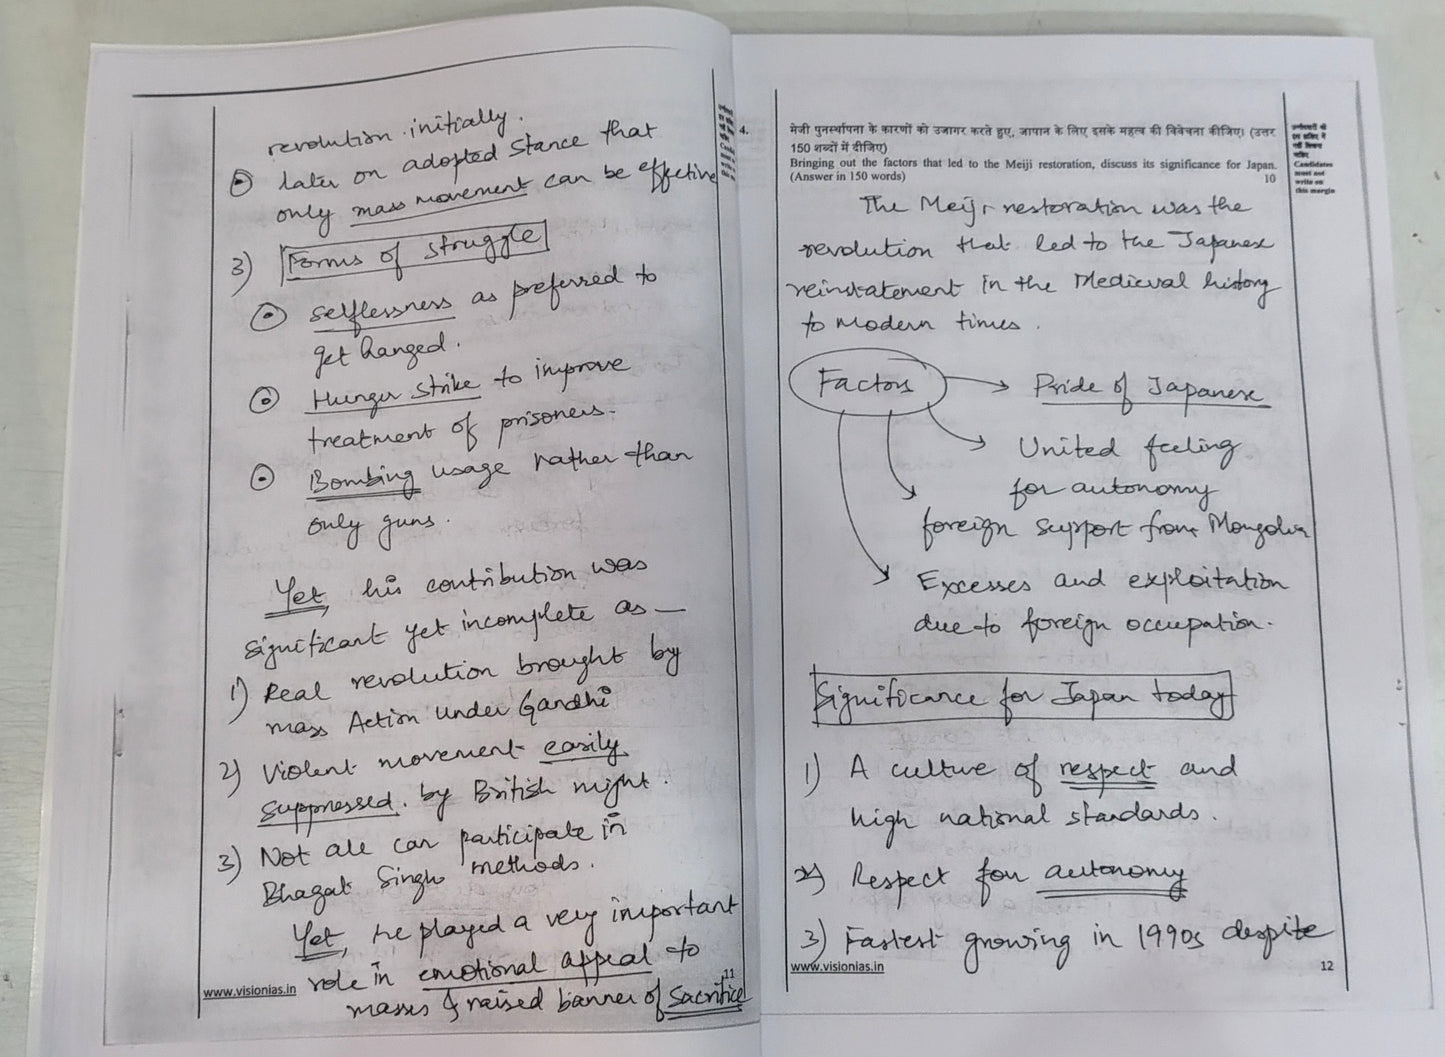 revolution initially.
later on adopted stance that
only mass movement can be effective
3) Forms of struggle
Selflessness as preferred to
get hanged.
Hunger Strike to improve
treatment of prisoners.
Bombing usage rather than
only guns.
Yet, his contribution was
significant yet incomplete as —
1) Real revolution brought by
mass Action under Gandhi
2) Violent movement easily
suppressed by British might.
3) Not all can participate in
Bhagat Singh methods.
Yet, he played a very important
role in emotional appeal to
masses & raised banner of Sacrifice
www.visionias.in
11
4. मेजी पुनर्स्थापना के कारणों को उजागर करते हुए, जापान के लिए इसके महत्व की विवेचना कीजिए। (उत्तर
150 शब्दों में दीजिए)
Bringing out the factors that led to the Meiji restoration, discuss its significance for Japan.
(Answer in 150 words) 10
Candidates
must not
write on
this margin
The Meiji restoration was the
revolution that led to the Japanese
reinstatement in the Medieval history
to modern times.
Factors
Pride of Japanese
United feeling
for autonomy
foreign support from Mongolia
Excesses and exploitation
due to foreign occupation.
Significance for Japan today
1) A culture of respect and
high national standards.
2) Respect for autonomy
3) Fastest growing in 1990s despite
www.visionias.in
12